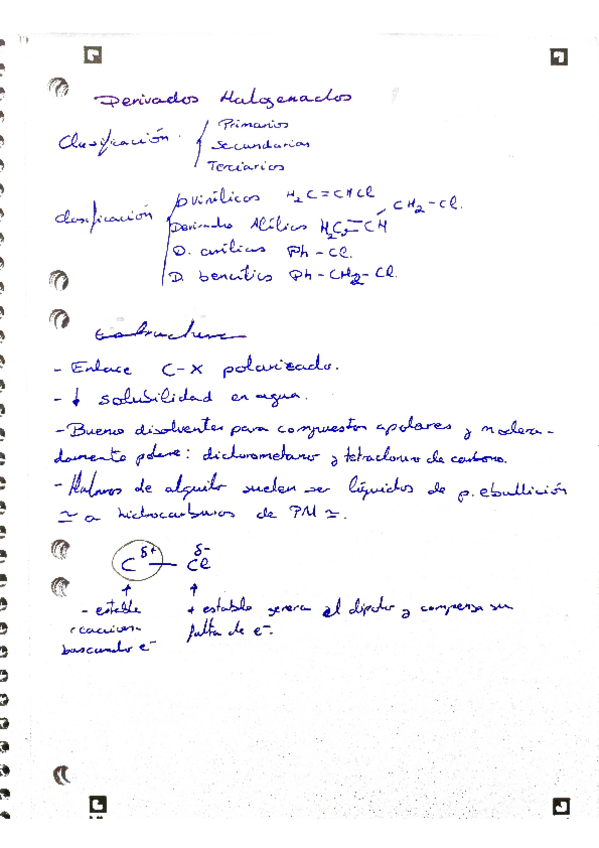 Derivados Halogenados
Clasificación
Primarios
Secundarios
Terciarios
Clasificación
D vinílicos H₂C=CHCl
Derivados Alílicos H₂C=CH CH₂-Cl.
D. arílicos Ph-Cl.
D. bencílics Ph-CH₂-Cl.
Estructura
- Enlace C-X polarizado.
- ↓ solubilidad en agua.
- Bueno disolventes para compuestos apolares y modera-
damente polare: diclorometano y tetracloruro de carbono.
- Haluros de alquilo suelen ser líquidos de p. ebullición
≃ a hidrocarburos de PM ≃.
C δ+ — Cl δ-
↑ ↑
- estable + estable genera el dipolo y compensa su
reacciona falta de e⁻.
buscando e⁻